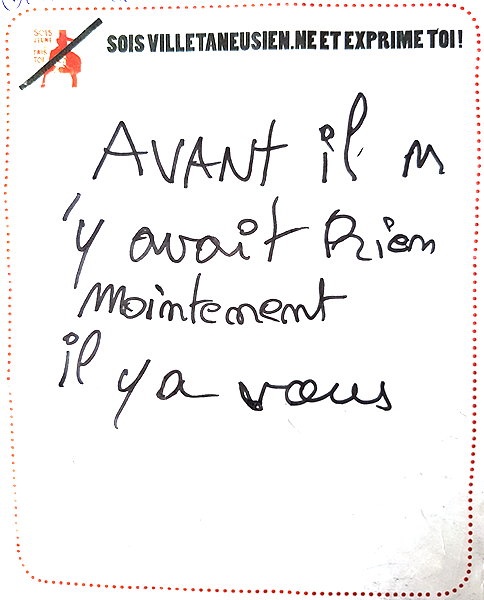 SOIS
JEUNE
TAIS
TOI
SOIS VILLETANEUSIEN.NE ET EXPRIME TOI !
AVANT il n
'y avait Rien
Maintenent
il y a vous